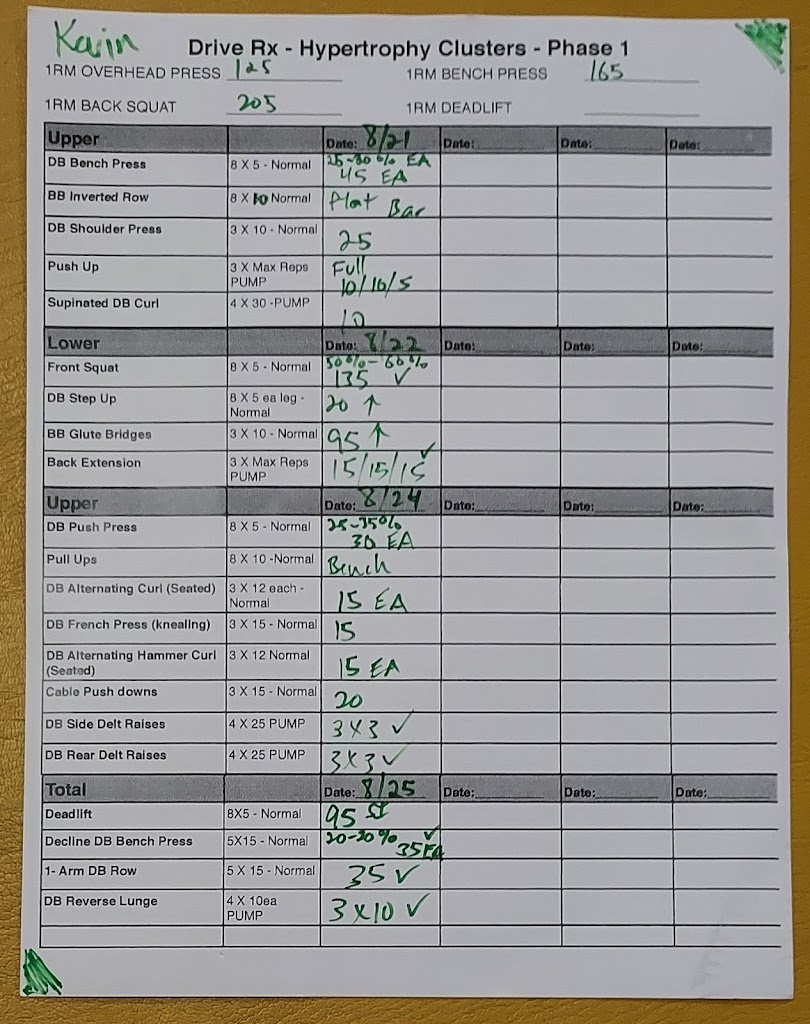 Kevin
Drive Rx - Hypertrophy Clusters - Phase 1
1RM OVERHEAD PRESS 125 1RM BENCH PRESS 165
1RM BACK SQUAT 205 1RM DEADLIFT
Upper Date: 8/21 Date: Date: Date:
DB Bench Press 8 X 5 - Normal 25-30% EA
45 EA
BB Inverted Row 8 X 10 Normal Flat Bar
DB Shoulder Press 3 X 10 - Normal 25
Push Up 3 X Max Reps PUMP Full
10/10/5
Supinated DB Curl 4 X 30 -PUMP 10
Lower Date: 8/22 Date: Date: Date:
Front Squat 8 X 5 - Normal 50%-60%
135 ✓
DB Step Up 8 X 5 ea leg - Normal 20 ↑
BB Glute Bridges 3 X 10 - Normal 95 ↑
Back Extension 3 X Max Reps PUMP 15/15/15 ✓
Upper Date: 8/24 Date: Date: Date:
DB Push Press 8 X 5 - Normal 25-35%
30 EA
Pull Ups 8 X 10 -Normal Bench
DB Alternating Curl (Seated) 3 X 12 each - Normal 15 EA
DB French Press (knealing) 3 X 15 - Normal 15
DB Alternating Hammer Curl (Seated) 3 X 12 Normal 15 EA
Cable Push downs 3 X 15 - Normal 20
DB Side Delt Raises 4 X 25 PUMP 3X3 ✓
DB Rear Delt Raises 4 X 25 PUMP 3X3 ✓
Total Date: 8/25 Date: Date: Date:
Deadlift 8X5 - Normal 95
Decline DB Bench Press 5X15 - Normal 20-20% ✓
35EA
1- Arm DB Row 5 X 15 - Normal 35 ✓
DB Reverse Lunge 4 X 10ea PUMP 3 X10 ✓